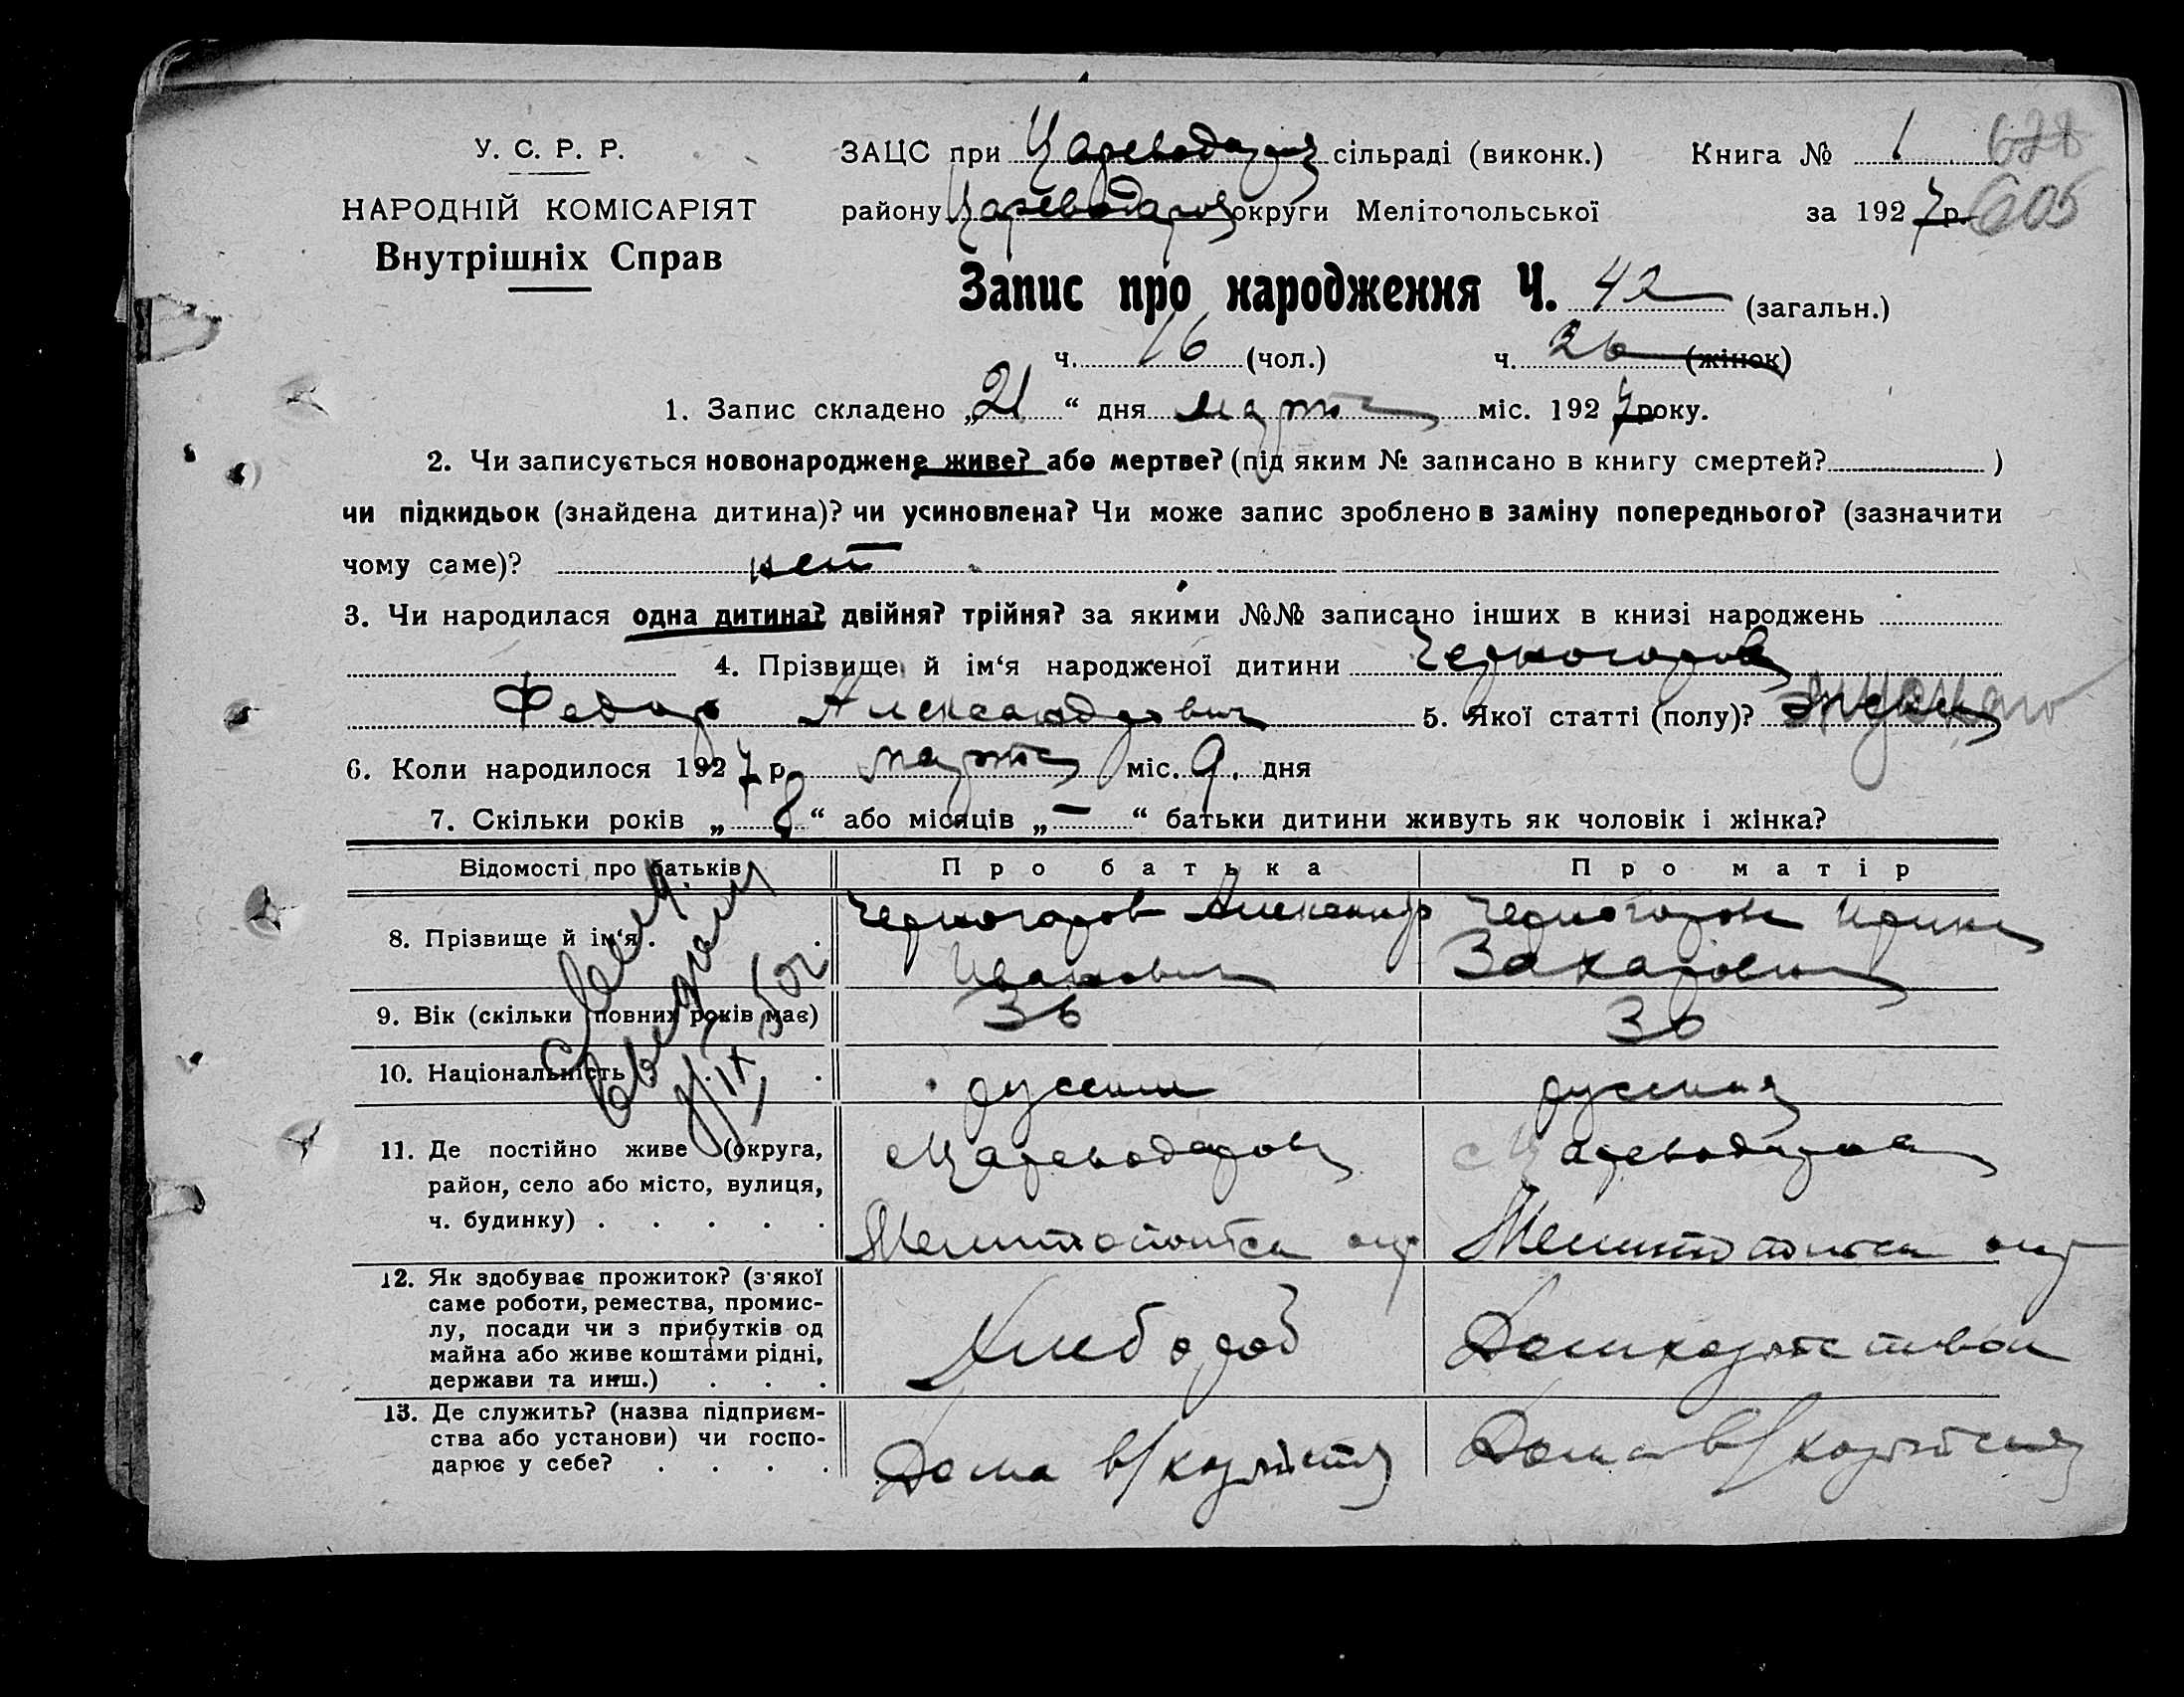 У. С. Р. Р.
НАРОДНІЙ КОМІСАРІЯТ
Внутрішніх Справ
ЗАЦС при Цареводар сільраді (виконк.) Книга № 1 628
району Цареводаров округи Мелітопольської за 1927 р. 605
Запис про народження Ч. 42 (загальн.)
ч. 16 (чол.) ч. 26 (жінок)
1. Запис складено „21“ дня марта міс. 1927 року.
2. Чи записується новонароджене живе? або мертве? (під яким № записано в книгу смертей? )
чи підкидьок (знайдена дитина)? чи усиновлена? Чи може запис зроблено в заміну попереднього? (зазначити
чому саме)? нет
3. Чи народилася одна дитина? двійня? трійня? за якими №№ записано інших в книзі народжень
4. Прізвище й ім‘я народженої дитини Черногоров
Федор Александрович 5. Якої статті (полу)?
6. Коли народилося 1927 р. марта міс. 9. дня
7. Скільки років „8“ або місяців „—“ батьки дитини живуть як чоловік і жінка?
Відомості про батьків Про батька Про матір
8. Прізвище й ім‘я . . Черногоров Александр Черногорова Ирина
Иванович Захаровна
9. Вік (скільки повних років має) 36 36
10. Національність . русский русская
11. Де постійно живе (округа, с Цареводаровка с Цареводаровка
район, село або місто, вулиця,
ч. будинку) . . . . . Мелитопольск окр Мелитопольск окр
12. Як здобуває прожиток? (з‘якої
саме роботи, ремества, промис-
лу, посади чи з прибутків од Хлебороб Домхозяйством
майна або живе коштами рідні,
держави та инш.) . . .
13. Де служить? (назва підприєм-
ства або установи) чи госпо- Дома в/хозяйстве Дома в/хозяйстве
дарює у себе? . . . .